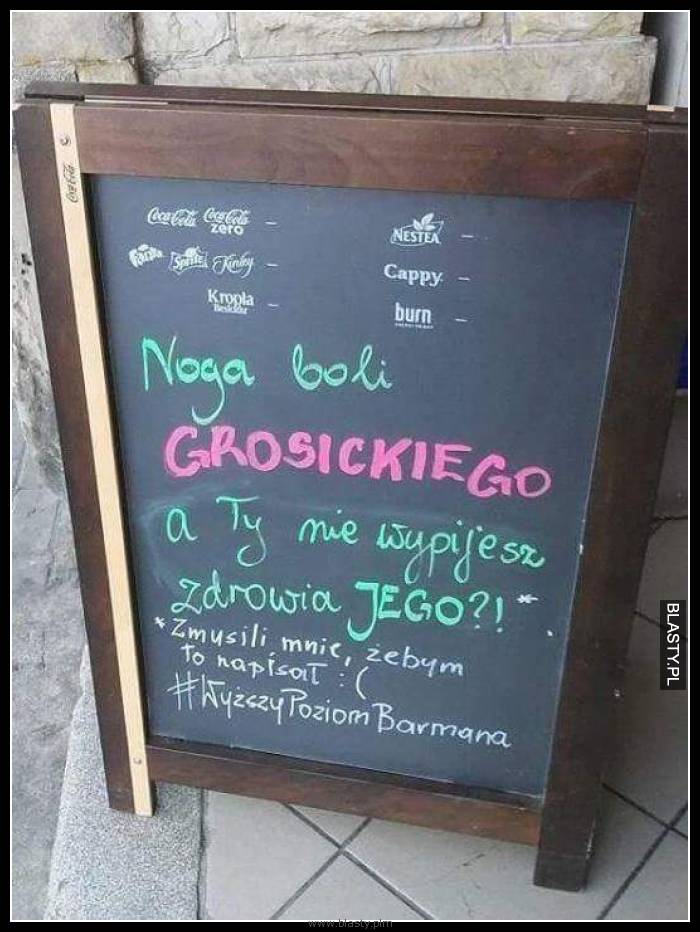 Coca-Cola
Coca-Cola Coca-Cola zero -
NESTEA -
Fanta Sprite Kinley -
Cappy -
Kropla Beskidu -
burn -
Noga boli
GROSICKIEGO
a Ty nie wypijesz
zdrowia JEGO?! *
*Zmusili mnie, żebym
to napisał :(
#WyższyPoziomBarmana
BLASTY.PL